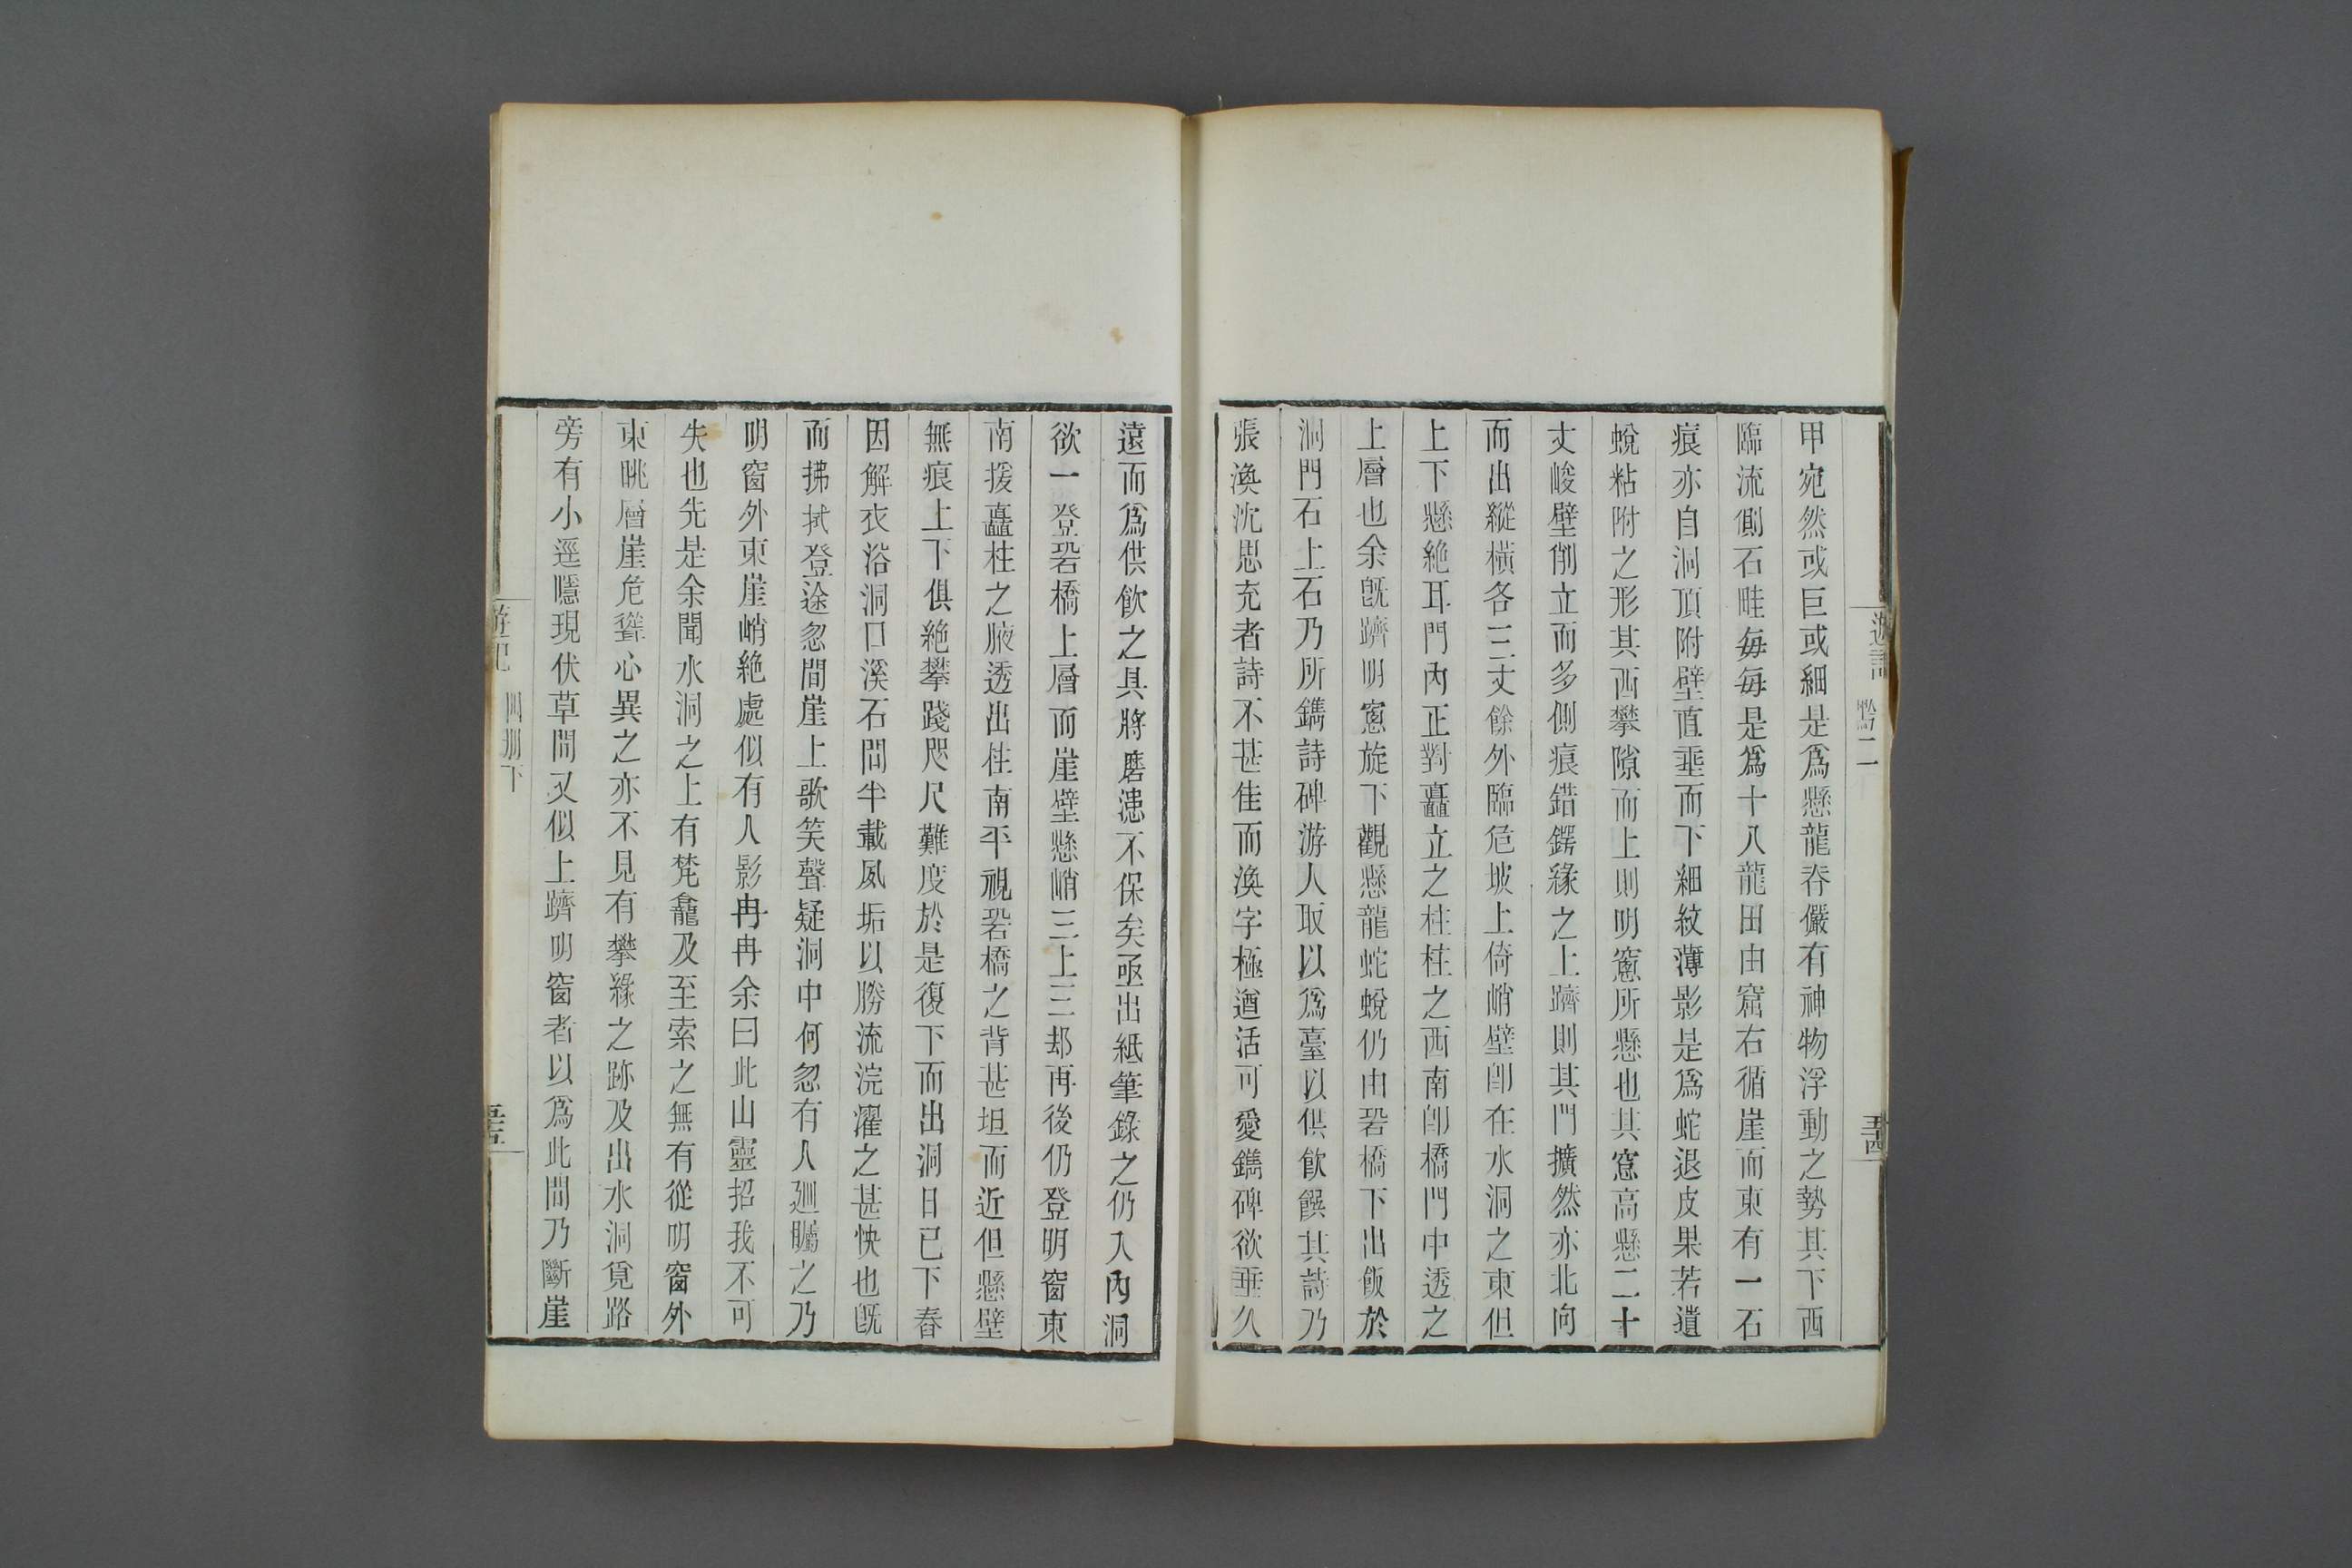 遊記 黔二 五十四
甲宛然或巨或細是爲懸龍脊儼有神物浮動之勢其下西
臨流側石畦每每是爲十八龍田由窟右循崖而東有一石
痕亦自洞頂附壁直垂而下細紋薄影是爲蛇退皮果若遺
蛻粘附之形其西攀隙而上則明窻所懸也其窻高懸二十
丈峻壁削立而多側痕錯鍔緣之上躋則其門擴然亦北向
而出縱橫各三丈餘外臨危坡上倚峭壁卽在水洞之東但
上下懸絶耳門內正對矗立之柱柱之西南卽橋門中透之
上層也余旣躋明窻旋下觀懸龍蛇蛻仍由碧橋下出飯於
洞門石上石乃所鐫詩碑游人取以爲臺以供飮饌其詩乃
張渙沈思充者詩不甚佳而渙字極遒活可愛鐫碑欲垂久
遠而爲供飮之具將磨漶不保矣亟出紙筆錄之仍入內洞
欲一登碧橋上層而崖壁懸峭三上三却再後仍登明窗東
南援矗柱之腋透出柱南平視碧橋之背甚坦而近但懸壁
無痕上下俱絶攀踐咫尺難度於是復下而出洞日已下舂
因解衣浴洞口溪石間半載夙垢以勝流浣濯之甚快也旣
而拂拭登途忽聞崖上歌笑聲疑洞中何忽有人廻矚之乃
明窗外東崖峭絶處似有人影冉冉余曰此山靈招我不可
失也先是余聞水洞之上有梵龕及至索之無有從明窗外
東眺層崖危聳心異之亦不見有攀緣之跡及出水洞覓路
旁有小逕隱現伏草間又似上躋明窗者以爲此間乃斷崖
遊記 四冊下 五十五